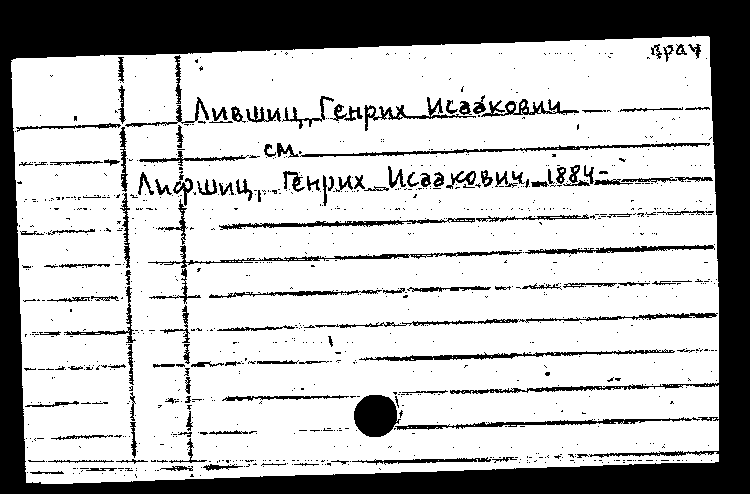 врач
Лившиц, Генрих Исаакович
см.
Лифшиц, Генрих Исаакович, 1884-